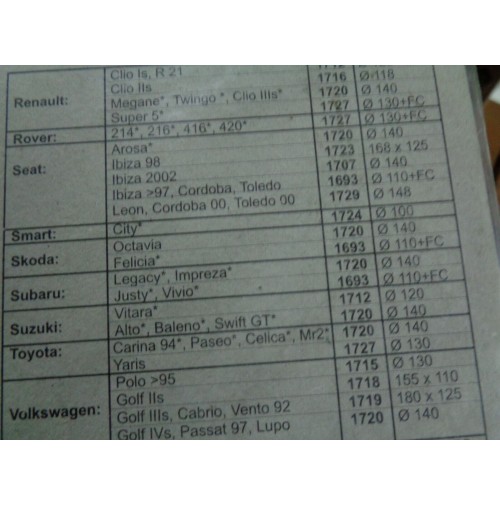 Clio Is, R 21 1716 Ø 118
Renault: Clio IIs 1720 Ø 140
Megane*, Twingo *, Clio IIIs* 1727 Ø 130+FC
Super 5* 1727 Ø 130+FC
Rover: 214*, 216*, 416*, 420* 1720 Ø 140
Seat: Arosa* 1723 168 x 125
Ibiza 98 1707 Ø 140
Ibiza 2002 1693 Ø 110+FC
Ibiza >97, Cordoba, Toledo 1729 Ø 148
Leon, Cordoba 00, Toledo 00
Smart: City* 1724 Ø 100
Skoda: Octavia 1720 Ø 140
Felicia* 1693 Ø 110+FC
Subaru: Legacy*, Impreza* 1720 Ø 140
Justy*, Vivio* 1693 Ø 110+FC
Suzuki: Vitara* 1712 Ø 120
Alto*, Baleno*, Swift GT* 1720 Ø 140
Toyota: Carina 94*, Paseo*, Celica*, Mr2* 1720 Ø 140
Yaris 1727 Ø 130
Volkswagen: Polo >95 1715 Ø 130
Golf IIs 1718 155 x 110
Golf IIIs, Cabrio, Vento 92 1719 180 x 125
Golf IVs, Passat 97, Lupo 1720 Ø 140